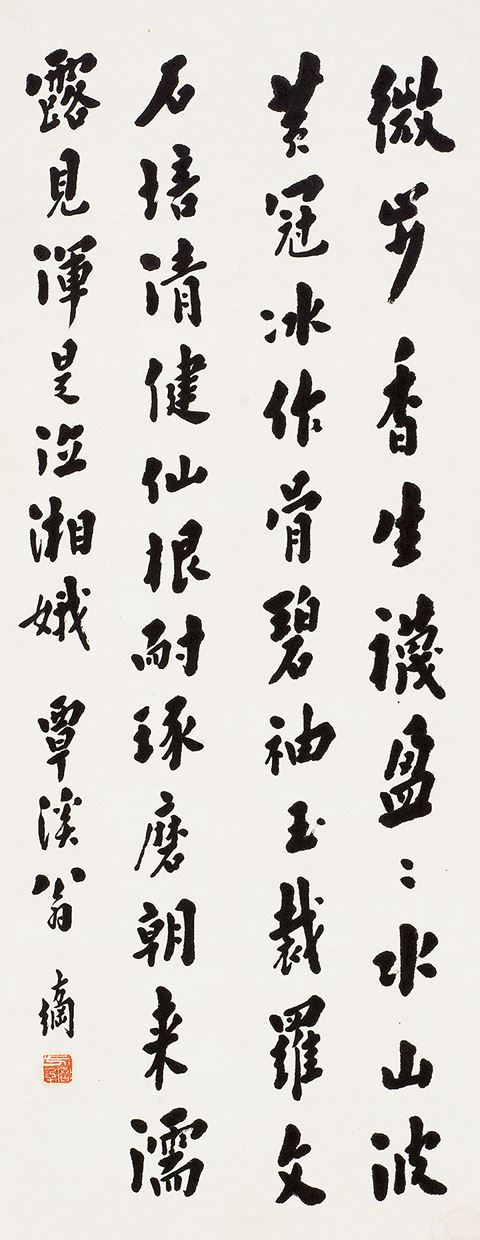 微步香生襪盈〻水山波
黄冠冰作骨碧袖玉裁羅文
石培清健仙根耐琢磨朝来濡
露見渾是泣湘娥 覃溪翁方綱